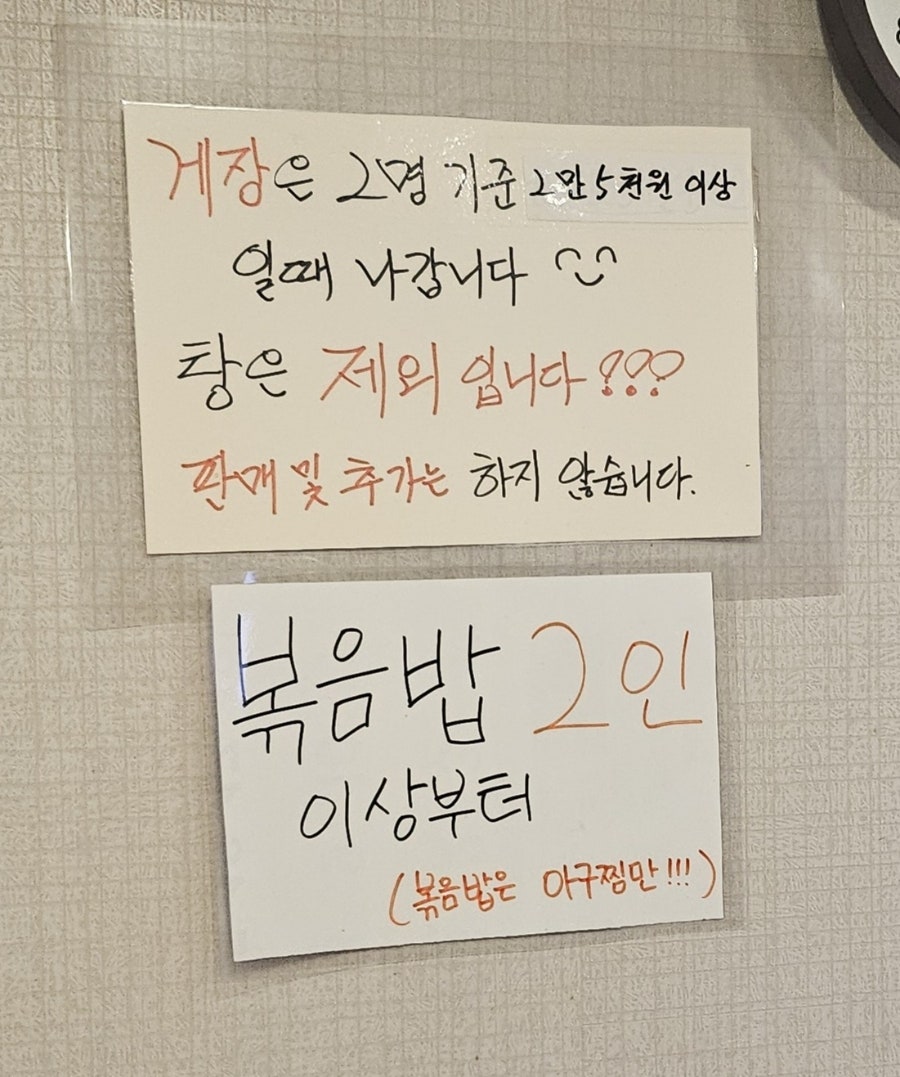 게장은 2명 기준 2만5천원 이상
일때 나갑니다 ^^
탕은 제외 입니다 !!!
판매 및 추가는 하지 않습니다.
볶음밥 2인
이상부터
(볶음밥은 아구찜만!!!)